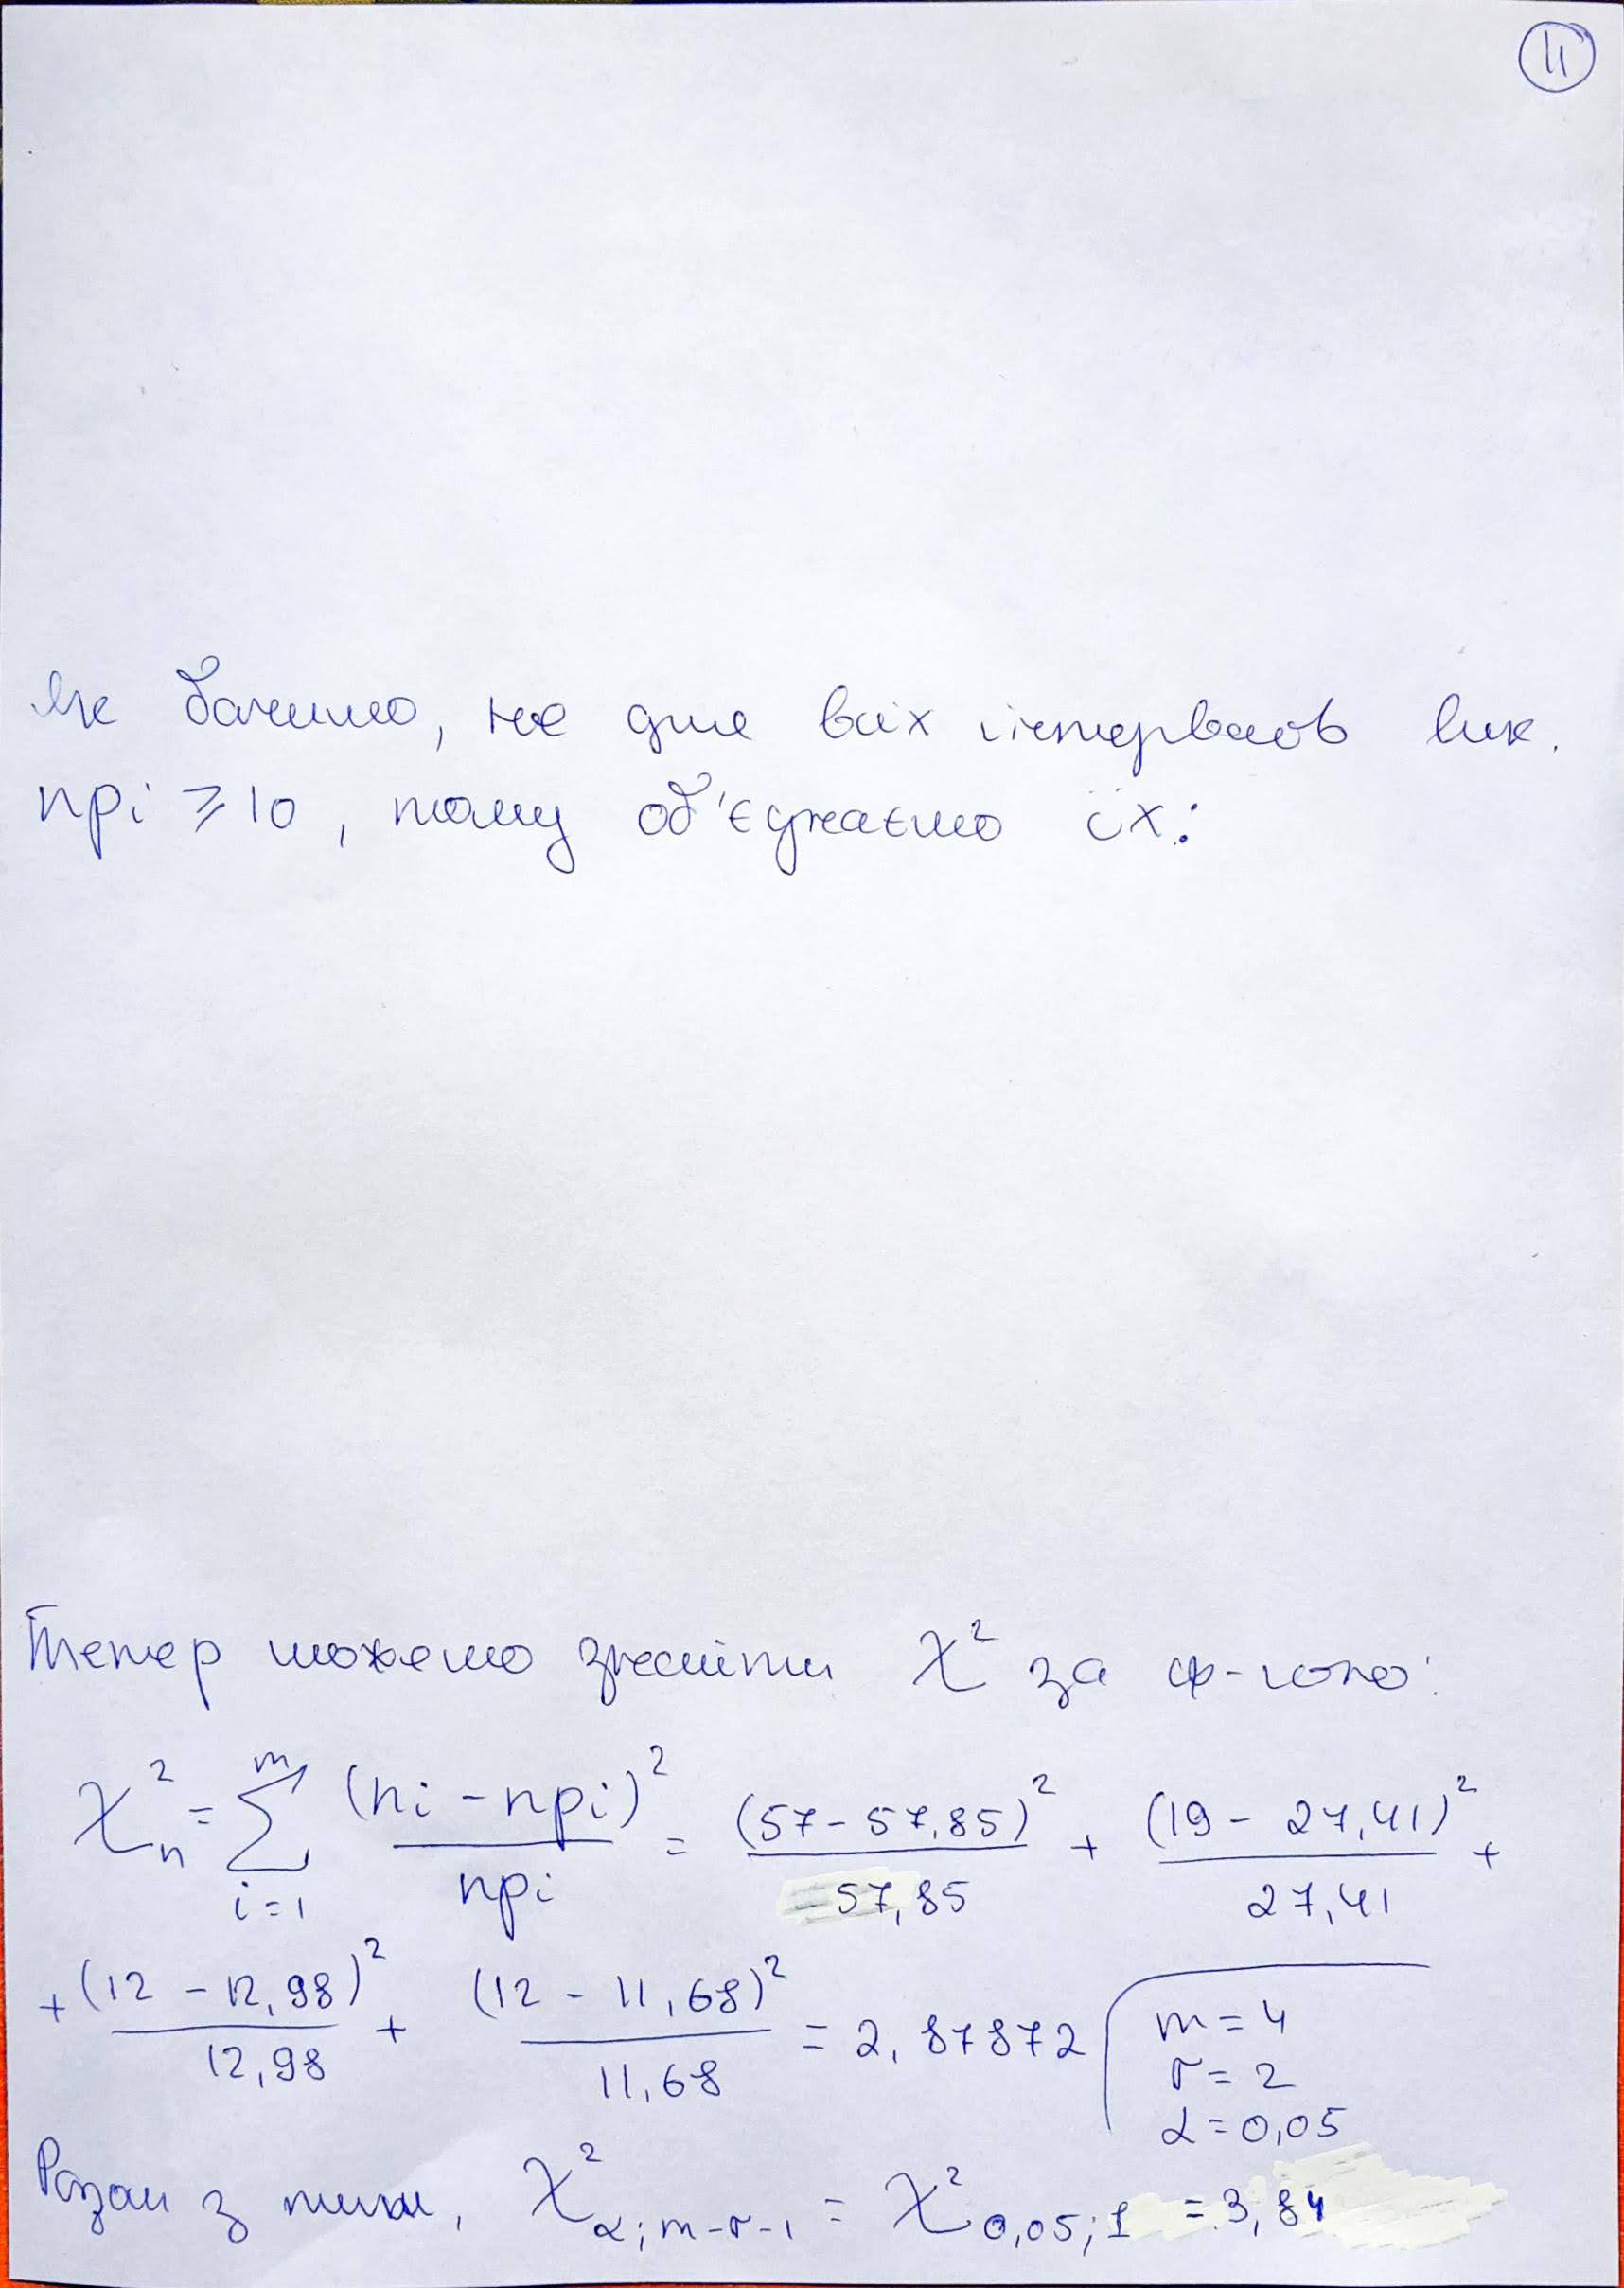 11
Як бачимо, не для всіх інтервалів вик.
npi ≥ 10, тому об'єднаємо їх:
Тепер можемо знайти χ² за ф-лою:
χ²n = Σ(i=1..m) (ni - npi)² / npi = (57 - 57,85)² / 57,85 + (19 - 27,41)² / 27,41 +
+ (12 - 12,98)² / 12,98 + (12 - 11,68)² / 11,68 = 2,87872
m = 4
r = 2
α = 0,05
Разом з тим, χ²α;m-r-1 = χ²0,05;1 = 3,84